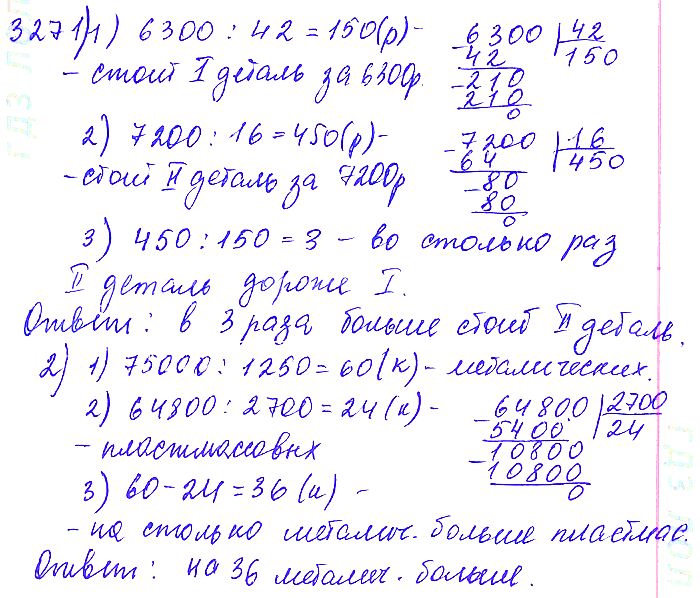 327 1) 1) 6300 : 42 = 150 (р) -
- стоит I деталь за 6300р.
6300 | 42
42 150
210
210
0
2) 7200 : 16 = 450 (р) -
- стоит II деталь за 7200р
7200 | 16
64 450
80
80
0
3) 450 : 150 = 3 - во столько раз
II деталь дороже I.
Ответ: в 3 раза больше стоит II деталь.
2) 1) 75000 : 1250 = 60 (к) - металических.
2) 64800 : 2700 = 24 (к) -
- пластмассовых
64800 | 2700
5400 24
10800
10800
0
3) 60 - 24 = 36 (к) -
- на столько металич. больше пластмас.
Ответ: на 36 металич. больше.